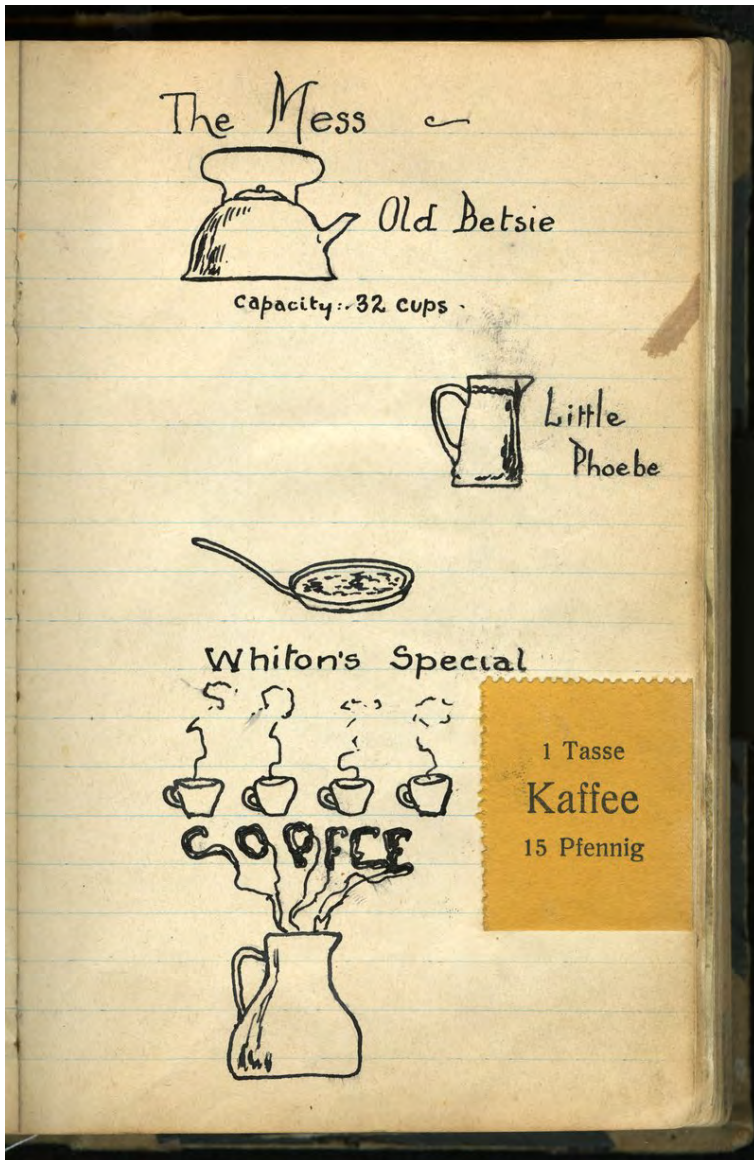 The Mess
Old Betsie
Capacity:. 32 cups.
Little
Phoebe
Whiton's Special
COFFEE
1 Tasse
Kaffee
15 Pfennig